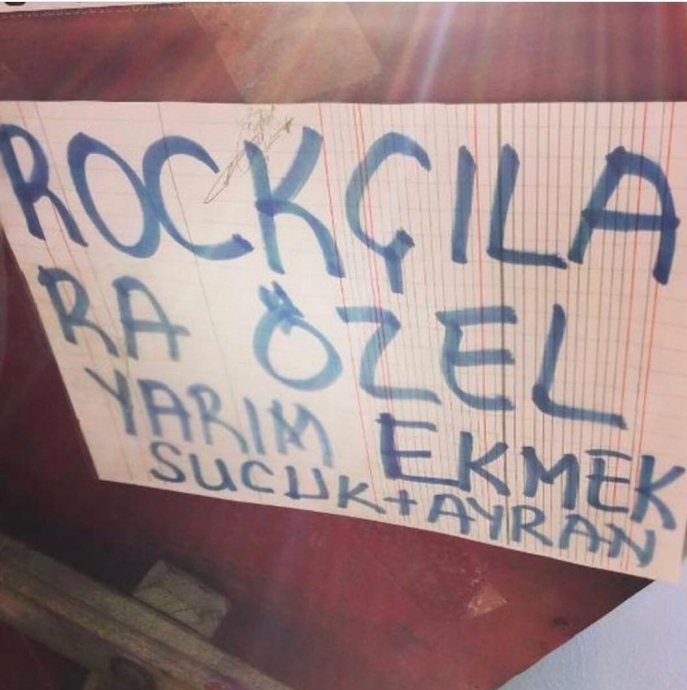 ROCKÇILA
RA ÖZEL
YARIM EKMEK
SUCUK+AYRAN